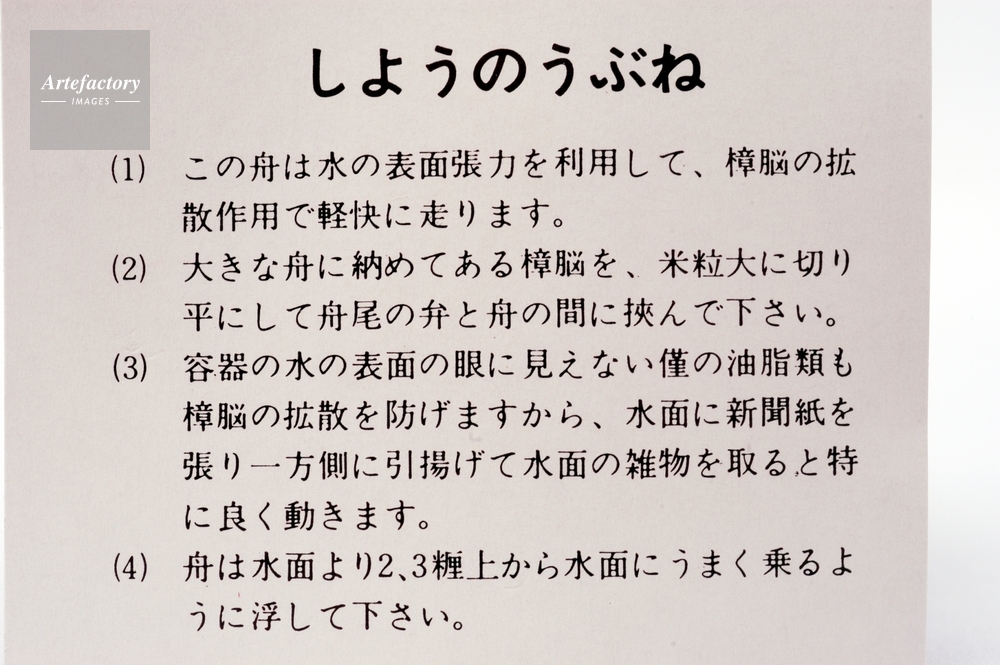 Artefactory
IMAGES
しようのうぶね
(1) この舟は水の表面張力を利用して、樟脳の拡
散作用で軽快に走ります。
(2) 大きな舟に納めてある樟脳を、米粒大に切り
平にして舟尾の弁と舟の間に挾んで下さい。
(3) 容器の水の表面の眼に見えない僅の油脂類も
樟脳の拡散を防げますから、水面に新聞紙を
張り一方側に引揚げて水面の雑物を取ると特
に良く動きます。
(4) 舟は水面より2、3糎上から水面にうまく乗るよ
うに浮して下さい。